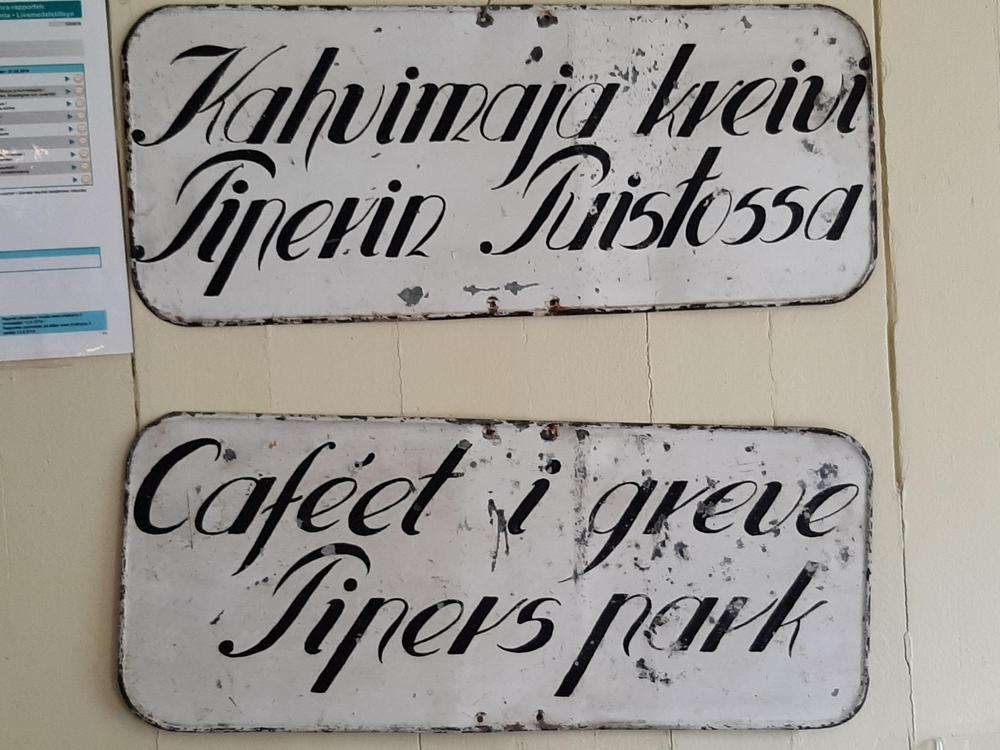 Kahvimaja kreivi
Piperin Puistossa
Caféet i greve
Pipers park